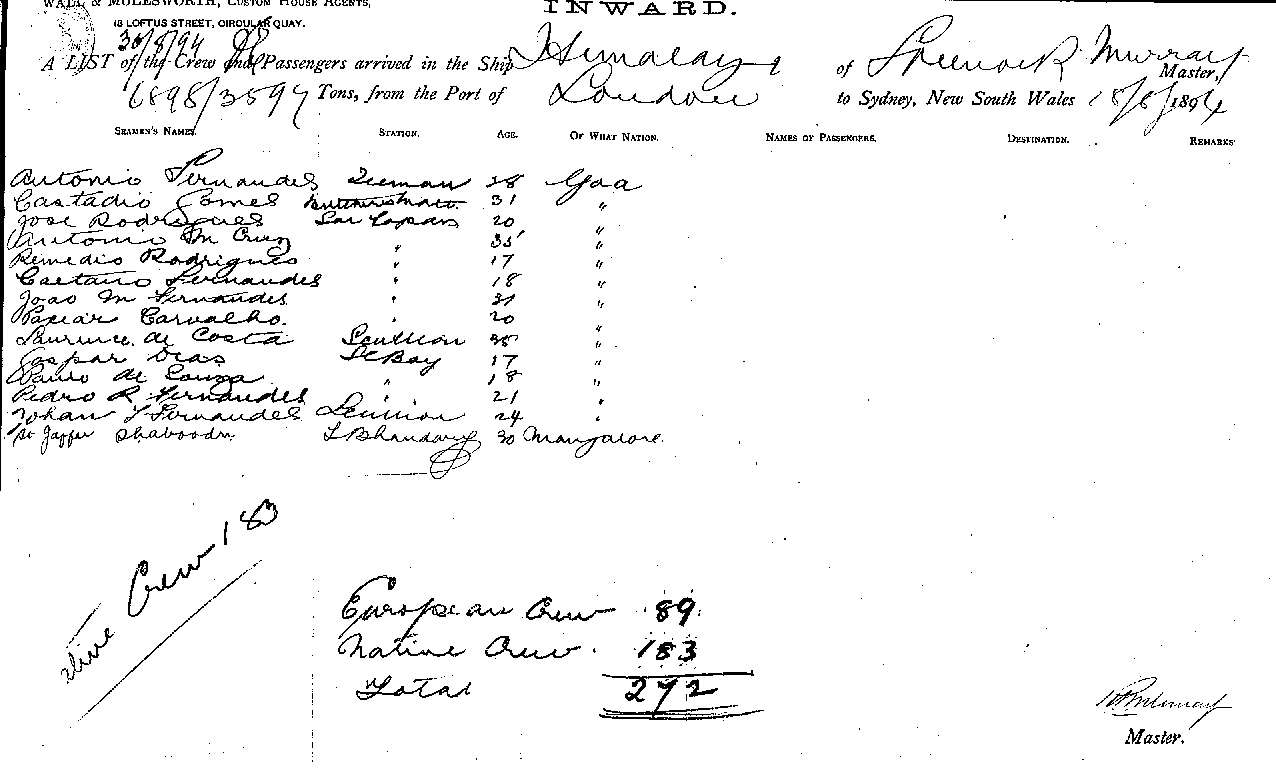 WALL & MOLESWORTH, CUSTOM HOUSE AGENTS,
18 LOFTUS STREET, CIRCULAR QUAY.
INWARD.
30/8/94
A LIST of the Crew and Passengers arrived in the Ship Himalaya of Greenock Murray Master,
6898/3597 Tons, from the Port of London to Sydney, New South Wales 18/8/1894
SEAMEN'S NAMES. STATION. AGE. OF WHAT NATION. NAMES OF PASSENGERS. DESTINATION. REMARKS
Antonio Fernandes 28 Goa
Gomes 31 "
Jose Rodrigues 20 "
Antonio M Cruz " 35 "
Remedio Rodrigues " 17 "
Caetano Fernandes " 18 "
Joao M Fernandes " 31 "
Carvalho. " 20 "
de Costa Scullion "
Gaspar Dias 17 "
de Souza " 18 "
Pedro R Fernandes " 21 "
Fernandes 24 "
Jaffer 30 Mangalore.
Crew 183
European Crew 89
Native Crew. 183
Total 272
Master.